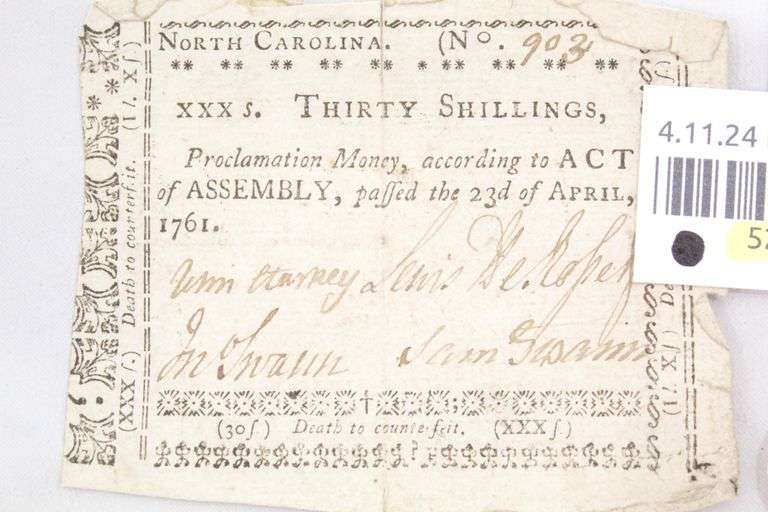 NORTH CAROLINA. (Nº. 903
XXX s. THIRTY SHILLINGS,
Proclamation Money, according to ACT
of ASSEMBLY, paſſed the 23d of APRIL,
1761.
Wm Harney Lewis De Rosset
Jn Swann Sam Swann
(30ſ) Death to counterfeit. (XXX ſ)
(XXX ſ.) Death to counterfeit. (1 l. X ſ)
4.11.24
52